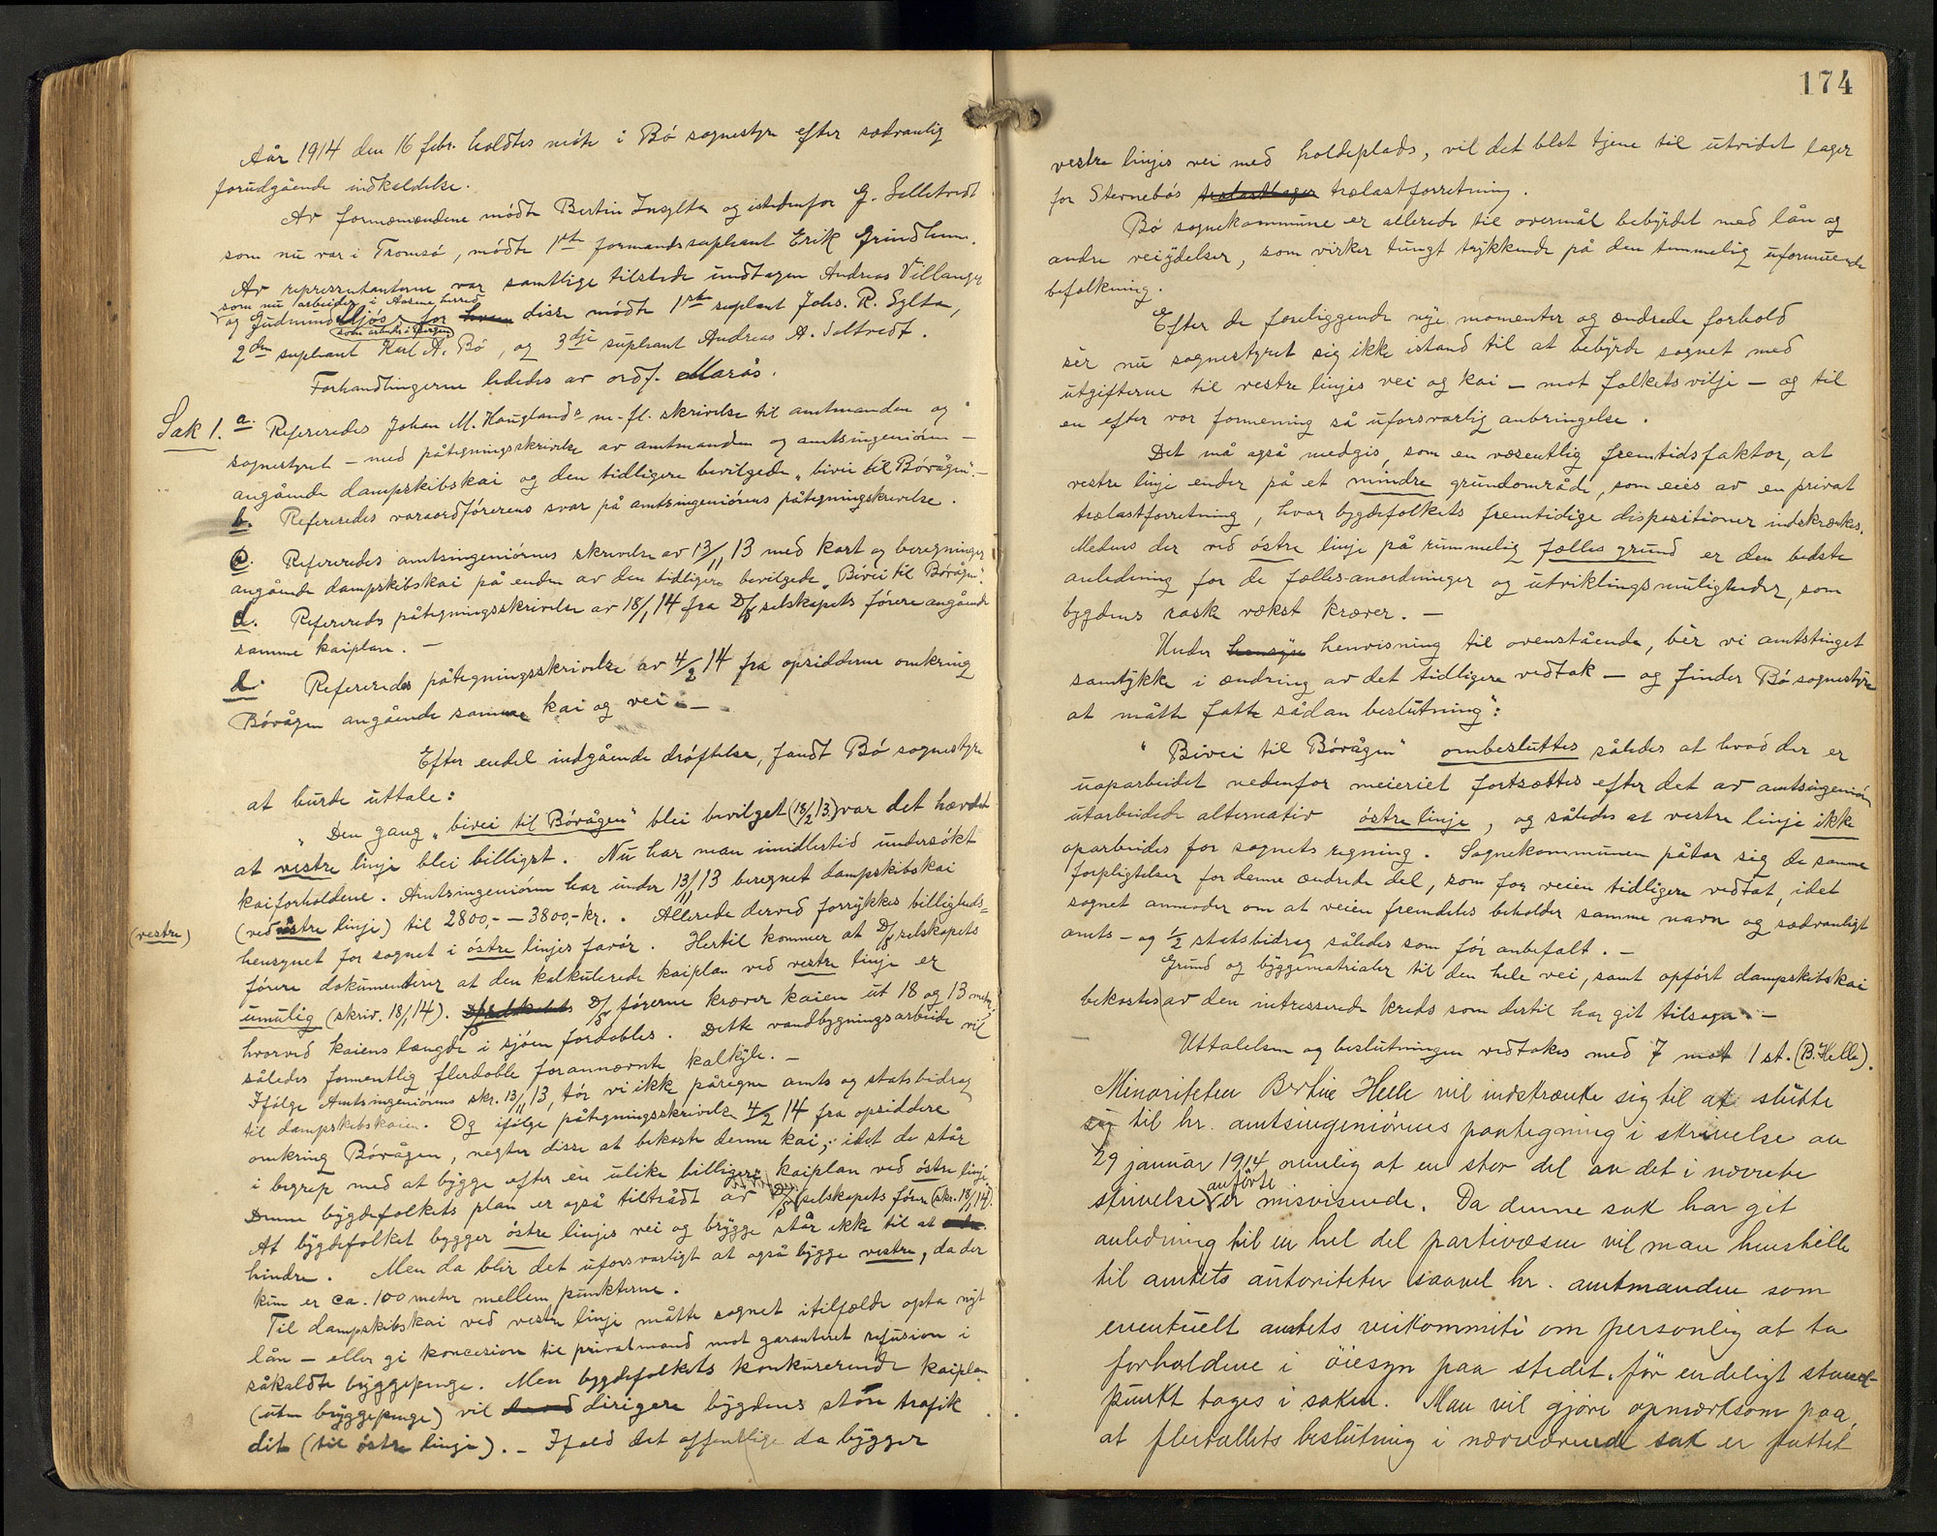 Aår 1914 den 16 febr. holdtes möte i Bö sognestyre efter sedvanlig
forudgående indkaldelse.
Av formændene mödte Bertin Insylta og istedenfor G. Selletvedt
som nu var i Tromsö, mödte 1ste formandssupleant Erik Grindheim.
Av repræsentanterne var samtlige tilstede undtagen Andreas Villanger
som nu arbeider i Aasene herred
og Gudmund Mjös, for disse mödte 1ste supleant Johs. R. Sylta,
som arbeider i Bergen
2den supleant Karl A. Bö, og 3dje supleant Andreas A. Saltvedt.
Forhandlingerne lededes av ordf. Marås.
Sak 1. a. Refereredes Johan M. Hauglands m. fl. skrivelse til amtmanden og
sognestyret – med påtegningsskrivelse av amtmanden og amtsingeniören –
angående dampskibskai og den tidligere bevilgede „bivei til Bövågen" –
b. Refereredes varaordförerens svar på amtsingeniörens påtegningskrivelse.
c. Refereredes amtsingeniörnes skrivelse av 13/11 13 med kart og beregninger
angående dampskibskai på enden av den tidligere bevilgede „Bivei til Bövågen".
d. Referereds påtegningsskrivelse av 18/1 14 fra D/S selskapets förere angående
samme kaiplan. –
e. Refereredes påtegningsskrivelse av 4/2 14 fra opsidderne omkring
Bövågen angående samme kai og vei. –
Efter endel indgående dröftelse, fandt Bö sognestyre
at burde uttale:
„Den gang „bivei til Bövågen" blei bevilget (18/2 13) var det hævdet
at vestre linje blei billigst. Nu har man imidlertid undersökt
kaiforholdene. Amtsingeniören har under 13/11 13 beregnet dampskibskai
(vestre)
(ved östre linje) til 2800,- – 3800,- kr. Allerede derved forrykkes billigheds-
hensynet for sognet i östre linjes favör. Hertil kommer at D/S selskapets
förere dokumenterer at den kalkulerede kaiplan ved vestre linje er
umulig (skriv. 18/1 14). D/S förerne kræver kaien ut 18 og 13 meter,
hvorved kaiens længde i sjöen fordobles. Dette vandbygningsarbeide vil
således formentlig flerdoble forannævnte kalkyle. –
Ifölge Amtsingeniörens skr. 13/11 13, tör vi ikke påregne amts og statsbidrag
til dampskibskaien. Og ifölge påtegningsskrivelse 4/2 14 fra opsiddere
omkring Bövågen, negter disse at bekoste denne kai; idet de står
i begrep med at bygge efter en ulike billigere kaiplan ved östre linje.
Denne bygdefolkets plan er også tiltrådt av D/S selskapets förere (skr. 18/1 14).
At bygdefolket bygger östre linjes vei og brygge står ikke til at
hindre. Men da blir det uforsvarligt at også bygge vestre, da der
kun er ca. 100 meter mellem punkterne.
Til dampskibskai ved vestre linje måtte sognet itilfælde opta nyt
lån – eller gi koncesion til privatmand mot garanteret refusion i
såkaldte bryggepenge. Men bygdefolkets konkurerende kaiplan
(uten bryggepenge) vil dirigere bygdens störe trafik
dit (til östre linje). – Ifald det offentlige da bygger
174
vestre linjes vei med holdeplads, vil det blot tjene til utvidet lager
for Sternebös trælastforretning.
Bö sognekommune er allerede til overmål bebyrdet med lån og
andre veiydelser, som virker tungt trykkende på den temmelig uformuende
befolkning.
Efter de foreliggende nye momenter og ændrede forhold
sèr nu sognestyret sig ikke istand til at bebyrde sognet med
utgifterne til vestre linjes vei og kai – mot folkets vilje – og til
en efter vor formening så uforsvarlig anbringelse.
Det må også medgis, som en væsentlig fremtidsfaktor, at
vestre linje ender på et mindre grundområde, som eies av en privat
trælastforretning, hvor bygdefolkets fremtidige dispositioner indskrænkes.
Medens der ved östre linje på rummelig fælles grund er den bedste
anledning for de fælles-anordninger og utviklingsmuligheder, som
bygdens rask vækst kræver. –
Under henvisning til ovenstående, bèr vi amtstinget
samtykke i ændring av det tidligere vedtak – og finder Bö sognestyre
at måtte fatte sådan beslutning":
„Bivei til Bövågen" ombesluttes således at hvad der er
uoparbeidet nedenfor meieriet fortsættes efter det av amtsingeniören
utarbeidede alternativ östre linje, og således at vestre linje ikke
oparbeides for sognets regning. Sognekommunen påtar sig de samme
forpligtelser for denne ændrede del, som for veien tidligere vedtat, idet
sognet anmoder om at veien fremdeles beholder samme navn og sædvanligt
amts- og 1/2 statsbidrag således som för anbefalt. –
Grund og byggematrialer til den hele vei, samt opfört dampskibskai
bekostes av den intresserede kreds som dertil har git tilsagn. –
Uttalelsen og beslutningen vedtokes med 7 mot 1 st. (B. Helle).
Minoriteten Bertine Helle vil indskrænke sig til at slutte
sig til hr. amtsingeniörens paategning i skrivelse av
29 januar 1914 nemlig at en stor del av det i nævnte
skrivelse anförte er misvisende. Da denne sak har git
anledning til en hel del partivæsen vil man henstille
til amtets autoriteter saavel hr. amtmanden som
eventuelt amtets veikommité om personlig at ta
forholdene i öiesyn paa stedet, för endeligt stand-
punkt tages i saken. Man vil gjöre opmerksom paa,
at flertallets beslutning i nærværende sak er fattet